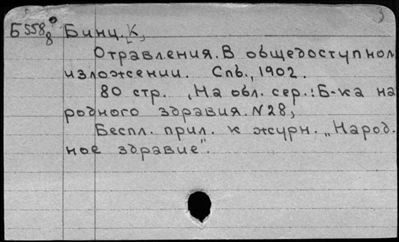 Б 558/8 Бинц. К,
Отравления. В общедоступном
изложении. Спб., 1902.
80 стр. „На обл. сер.: Б-ка на
родного здравия. N28,
Беспл. прил. к журн. „Народ.
ное здравие".